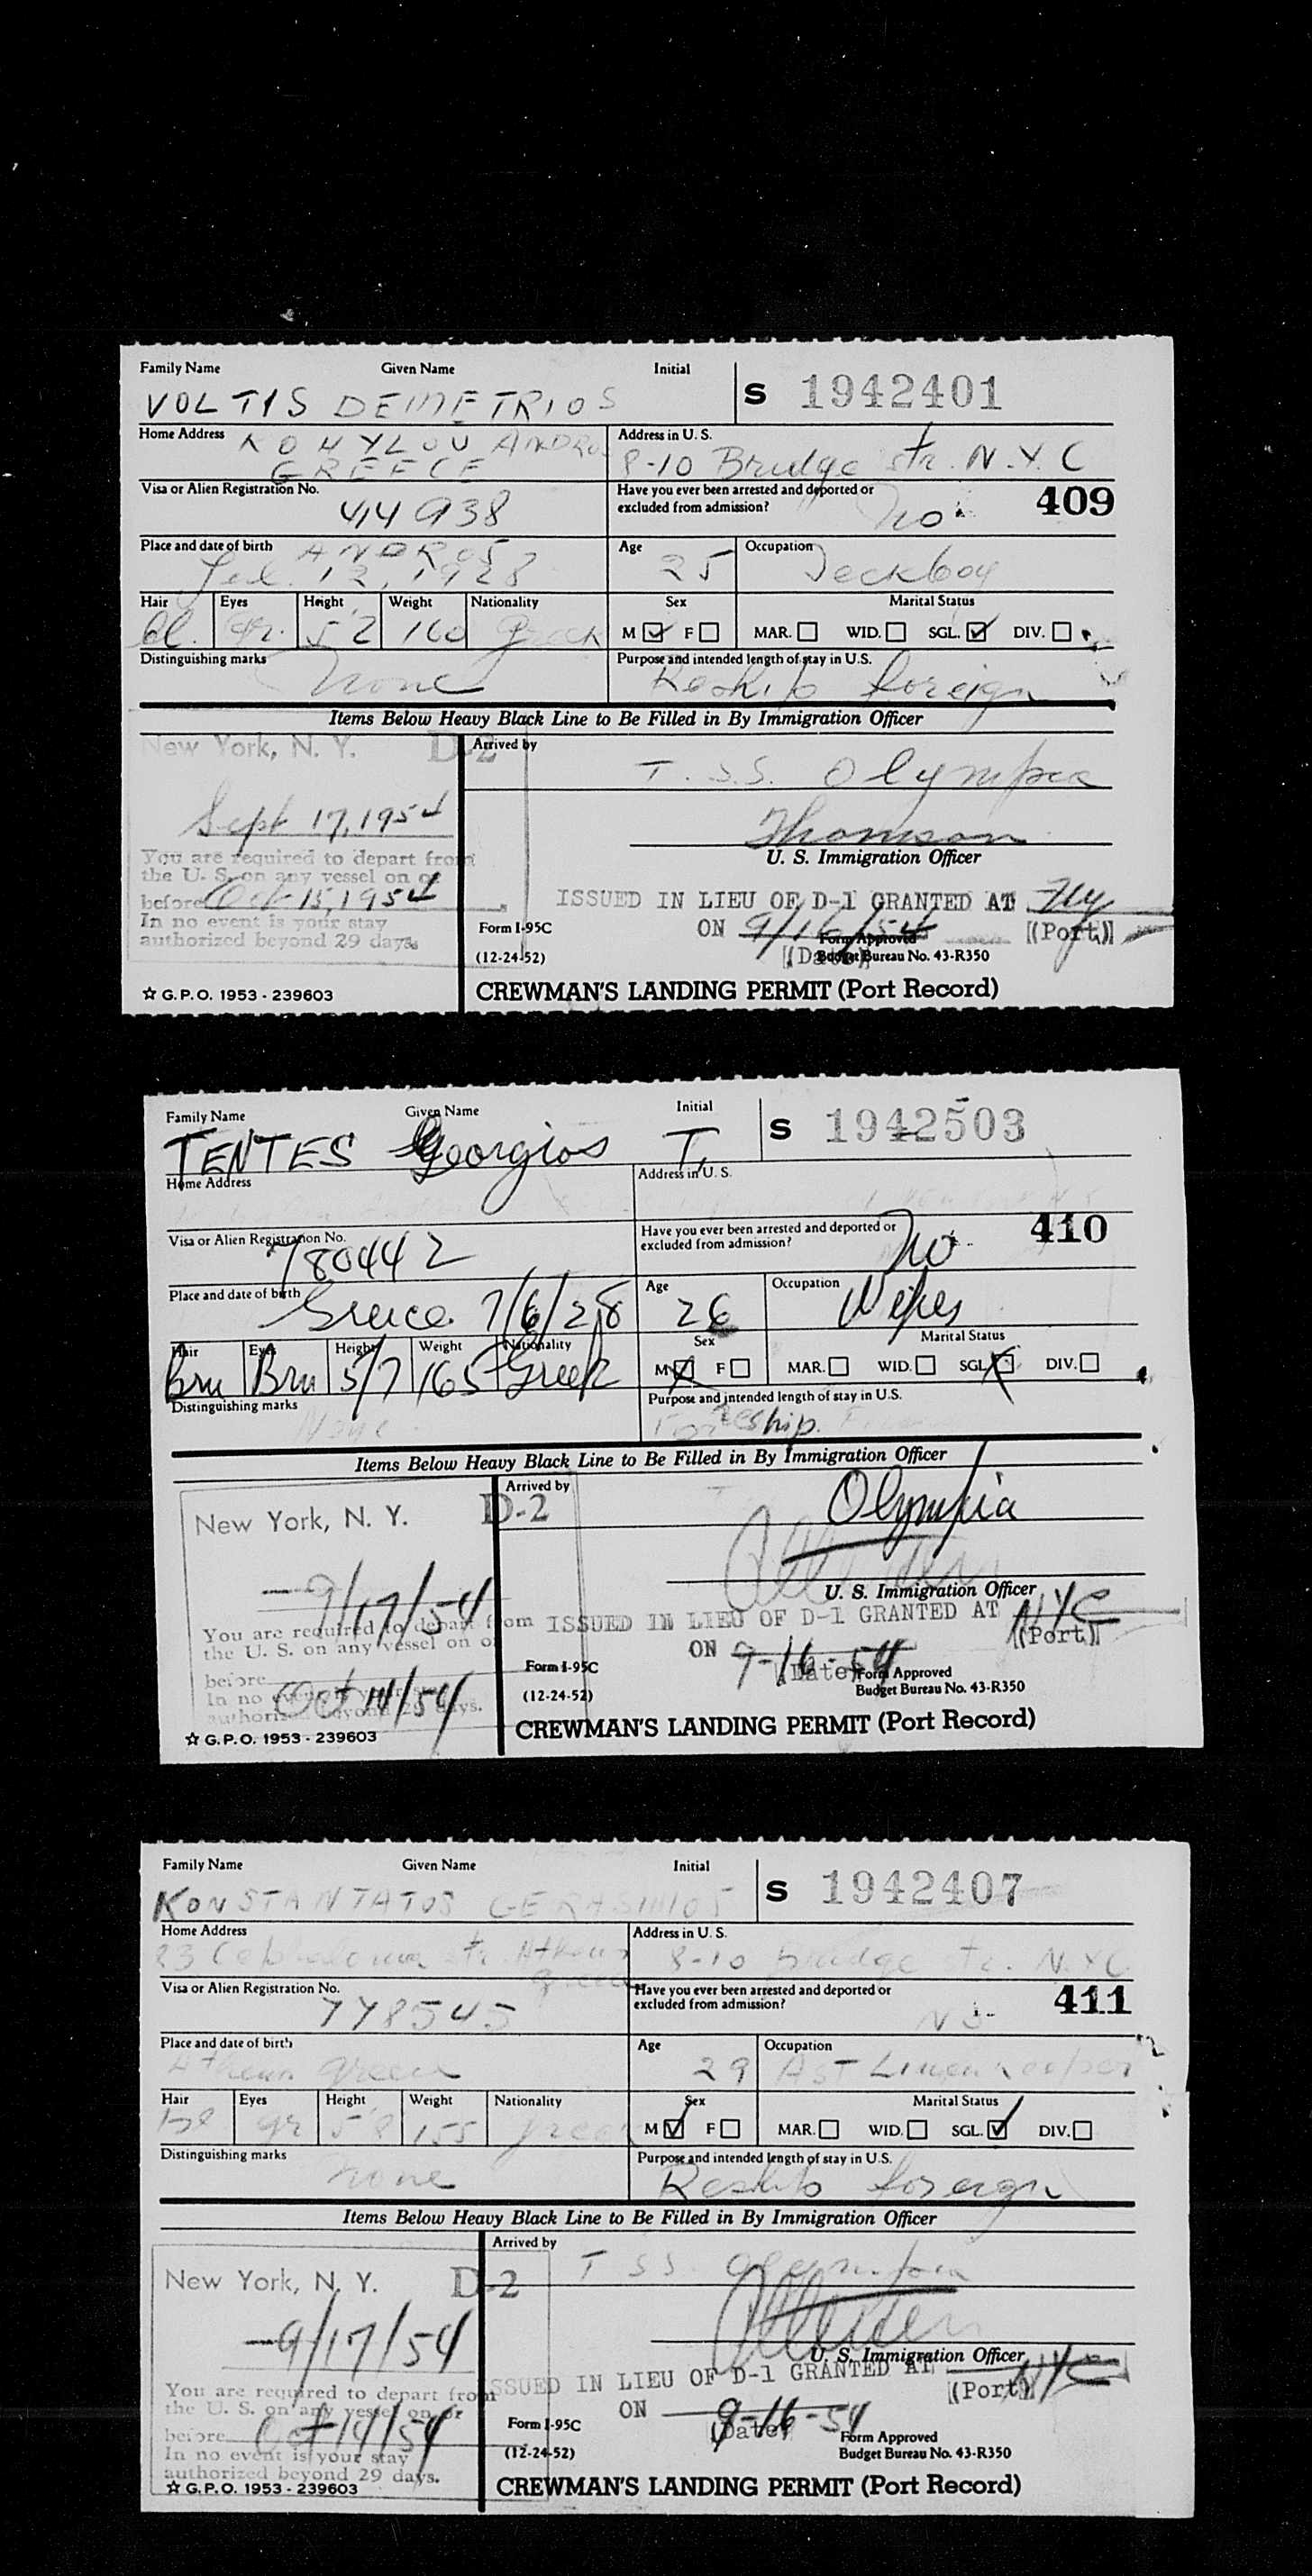 Family Name Given Name Initial
S 1942401
VOLTIS DEMETRIOS
Home Address
GREECE
Address in U. S.
8-10 Bridge str. N.Y.C
Visa or Alien Registration No.
414938
Have you ever been arrested and deported or
excluded from admission? No
409
Place and date of birth ANDROS
12, 1928
Age 25
Occupation Deckboy
Hair bl. Eyes gr. Height 5 2 Weight 160 Nationality Greek
Sex M F
Marital Status MAR. WID. SGL. DIV.
Distinguishing marks None
Purpose and intended length of stay in U.S.
Reship foreign
Items Below Heavy Black Line to Be Filled in By Immigration Officer
New York, N. Y. D-2
Arrived by
T.S.S. Olympia
Sept 17, 1954
Thomson
U. S. Immigration Officer
You are required to depart from
the U. S. on any vessel on or
before Oct 15, 1954
In no event is your stay
authorized beyond 29 days.
ISSUED IN LIEU OF D-1 GRANTED AT NY
(Port)
ON 9/16/54
(Date)
Form I-95C
(12-24-52)
Form Approved
Budget Bureau No. 43-R350
☆ G.P.O. 1953 - 239603
CREWMAN'S LANDING PERMIT (Port Record)
Family Name Given Name Initial
S 1942503
TENTES Georgios T.
Home Address
Address in U. S.
Visa or Alien Registration No.
780442
Have you ever been arrested and deported or
excluded from admission? No
410
Place and date of birth Greece 7/6/28
Age 26
Occupation
Hair Brn Eyes Brn Height 5/7 Weight 165 Nationality Greek
Sex M F
Marital Status MAR. WID. SGL. DIV.
Distinguishing marks None
Purpose and intended length of stay in U.S.
Reship
Items Below Heavy Black Line to Be Filled in By Immigration Officer
New York, N. Y. D-2
Arrived by
Olympia
9/17/54
U. S. Immigration Officer
You are required to depart from
the U. S. on any vessel on or
before Oct 14/54
In no event is your stay
authorized beyond 29 days.
ISSUED IN LIEU OF D-1 GRANTED AT NYC
(Port)
ON 9-16-54
(Date)
Form I-95C
(12-24-52)
Form Approved
Budget Bureau No. 43-R350
☆ G.P.O. 1953 - 239603
CREWMAN'S LANDING PERMIT (Port Record)
Family Name Given Name Initial
S 1942407
KONSTANTATOS GERASIMOS
Home Address
23 str. Athens
Greece
Address in U. S.
8-10 Bridge str. N.Y.C
Visa or Alien Registration No.
778545
Have you ever been arrested and deported or
excluded from admission? No
411
Place and date of birth
Athens Greece
Age 29
Occupation Ast Linenkeeper
Hair bl Eyes gr Height 5 8 Weight 155 Nationality Greek
Sex M F
Marital Status MAR. WID. SGL. DIV.
Distinguishing marks
None
Purpose and intended length of stay in U.S.
Reship foreign
Items Below Heavy Black Line to Be Filled in By Immigration Officer
New York, N. Y. D-2
Arrived by
T SS Olympia
9/17/54
U. S. Immigration Officer
You are required to depart from
the U. S. on any vessel on or
before Oct 14/54
In no event is your stay
authorized beyond 29 days.
ISSUED IN LIEU OF D-1 GRANTED AT NYC
(Port)
ON 9-16-54
(Date)
Form I-95C
(12-24-52)
Form Approved
Budget Bureau No. 43-R350
☆ G.P.O. 1953 - 239603
CREWMAN'S LANDING PERMIT (Port Record)